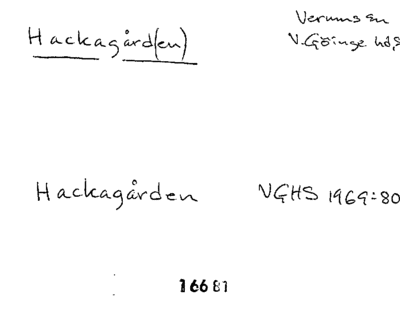 Hackagård(en)
Verums sn
V. Göinge hd,S
Hackagården
VGHS 1969:80
16681